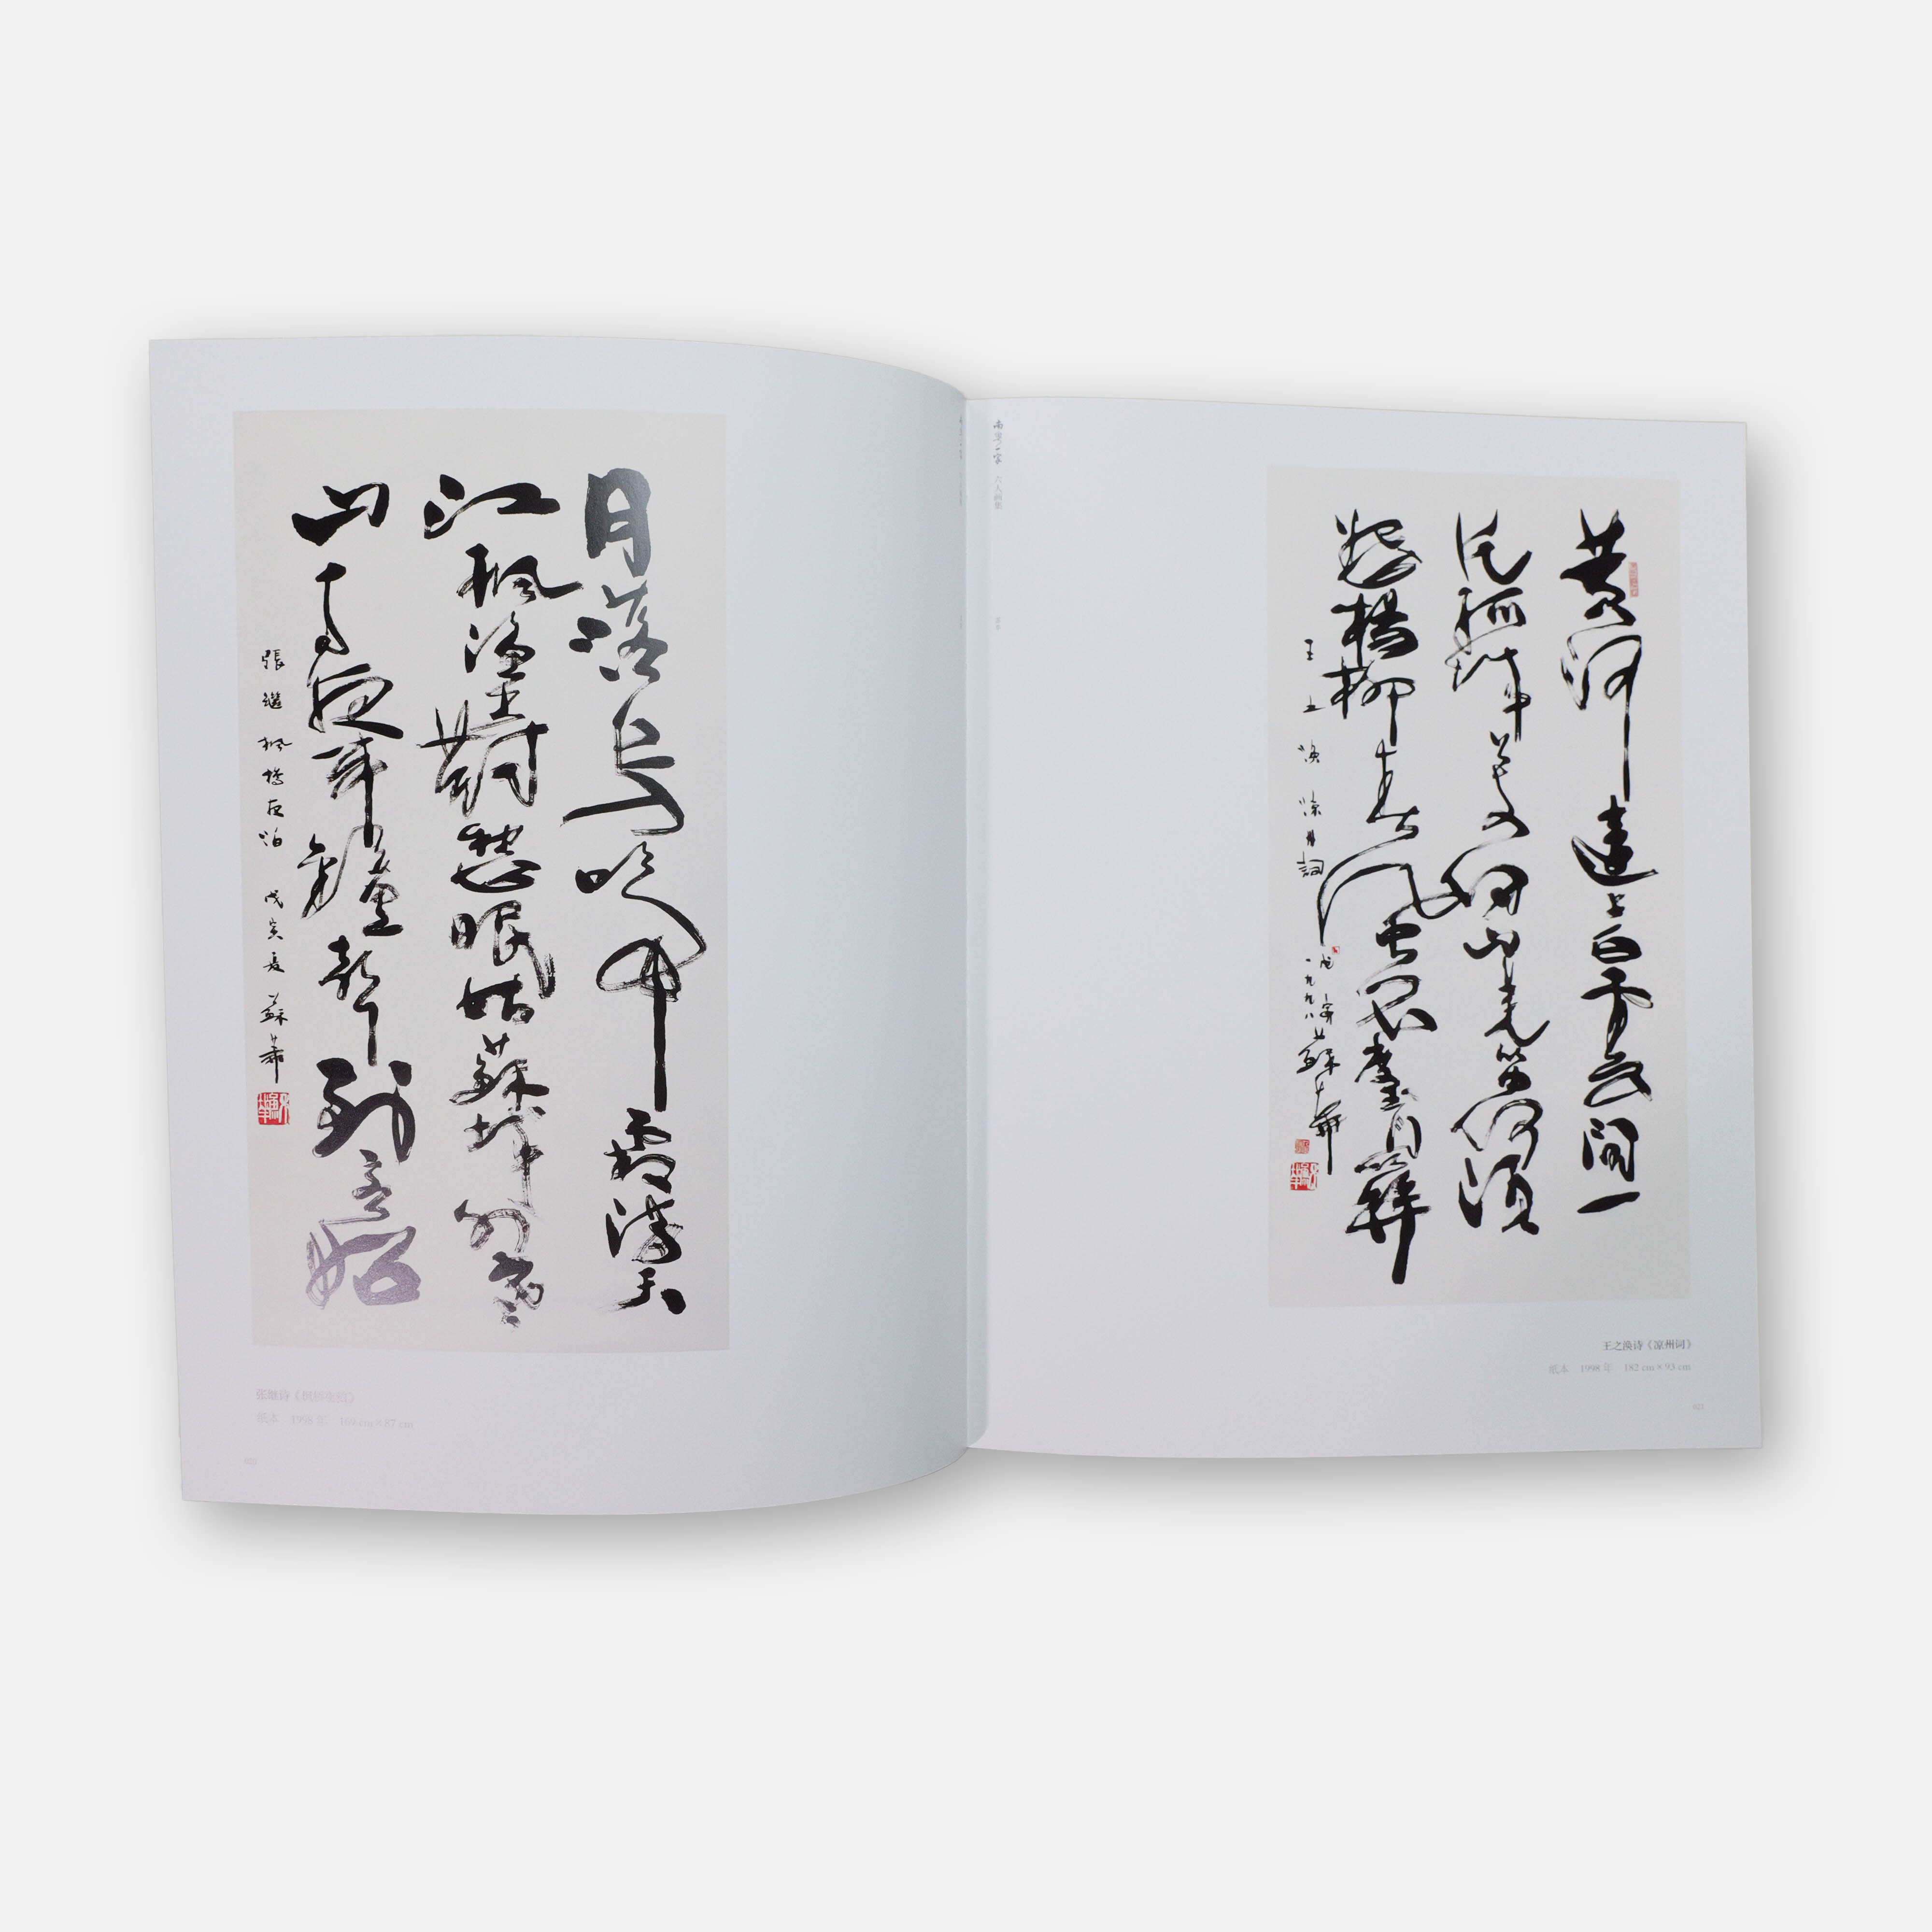 月落烏啼霜滿天
江楓漁火對愁眠姑蘇城外寒
山寺夜半鐘聲到客船
張繼楓橋夜泊 戊寅夏 蘇華
张继诗《枫桥夜泊》
纸本 1998 年 169 cm × 87 cm
020
黄河遠上白雲間一
片孤城萬仞山羌笛何須
怨楊柳春風不度玉門關
王之渙涼州詞
戊寅
一九九八 蘇華
王之涣诗《凉州词》
纸本 1998 年 182 cm × 93 cm
021